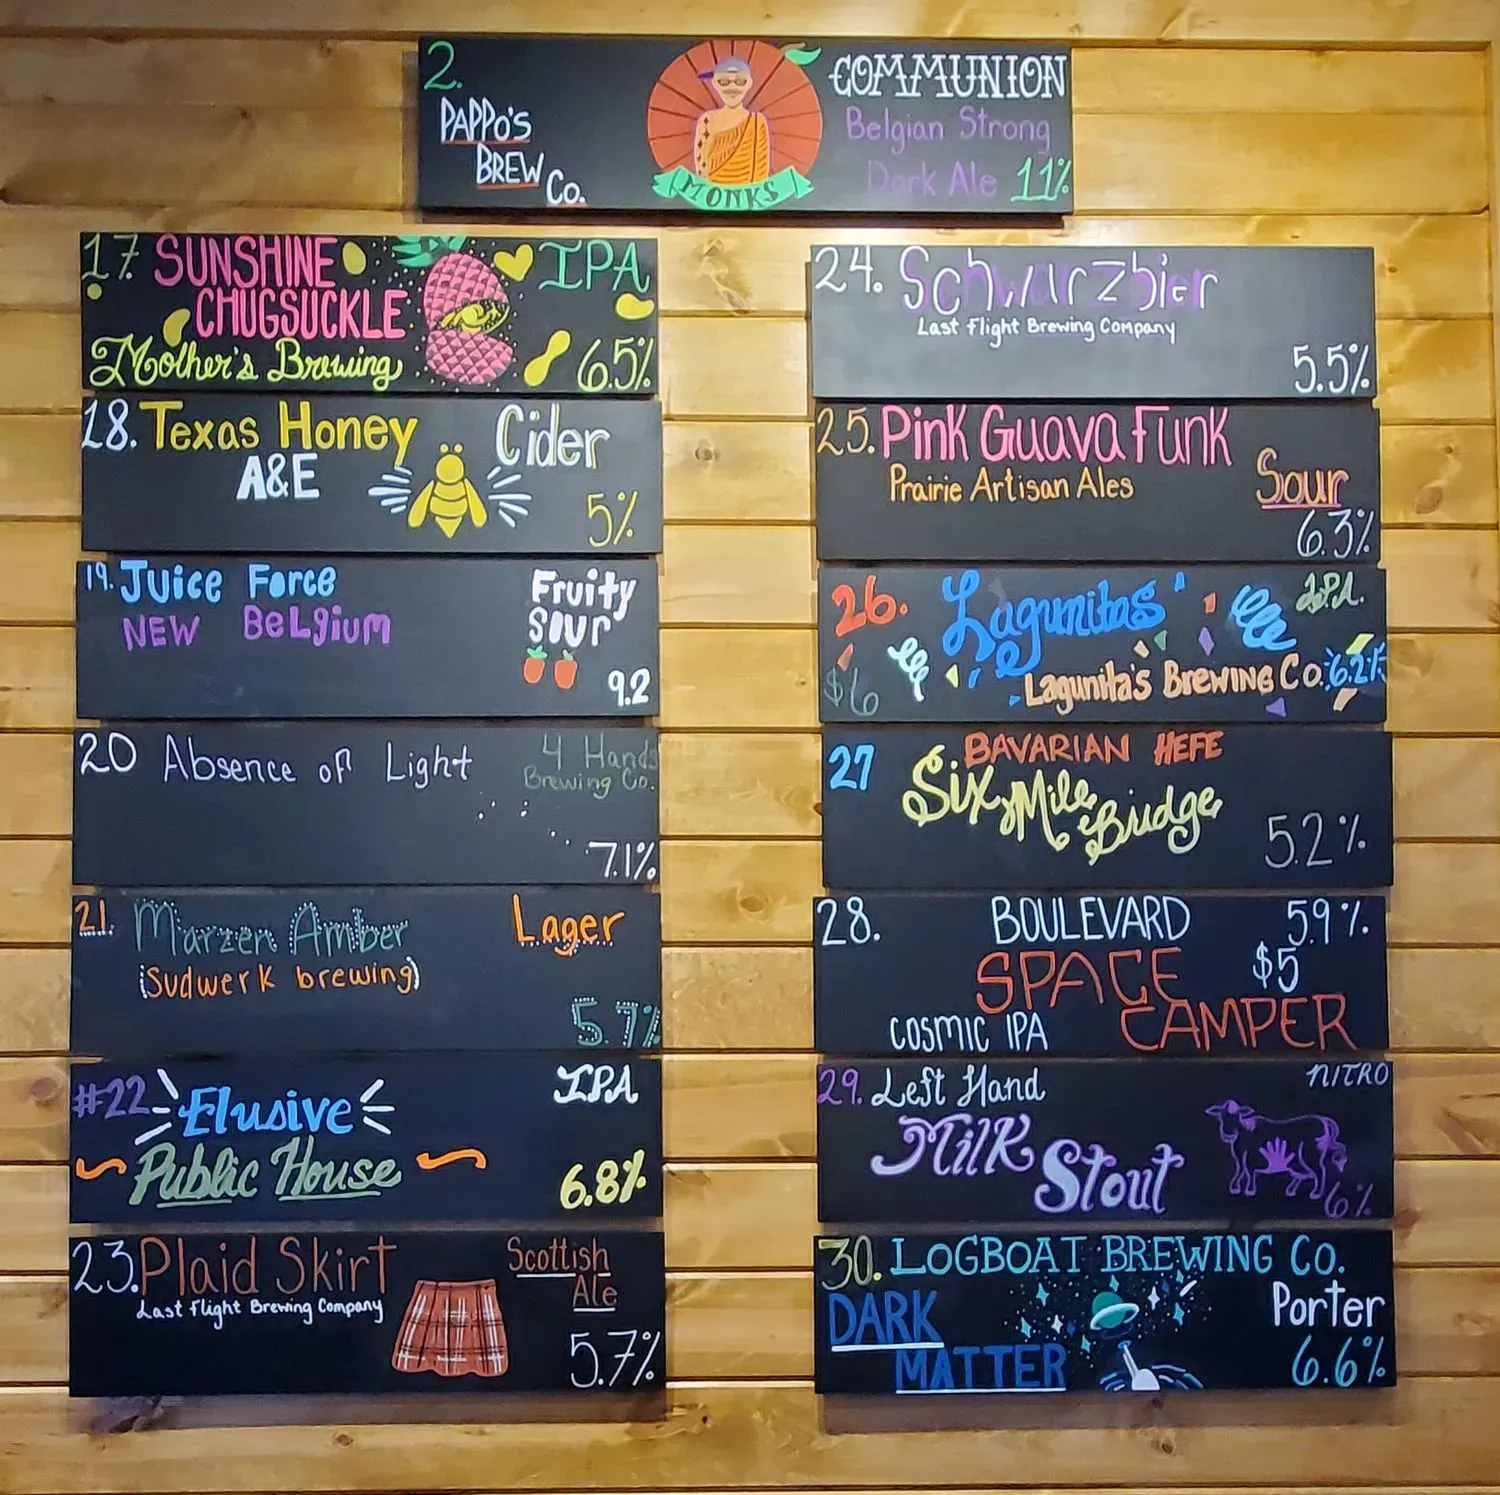 2.
PAPPO'S
BREW
Co.
MONKS
COMMUNION
Belgian Strong
Dark Ale 11%
17. SUNSHINE
CHUGSUCKLE
Mother's Brewing
IPA
6.5%
18. Texas Honey
A&E
Cider
5%
19. Juice Force
NEW BeLgium
Fruity
Sour
9.2
20 Absence of Light
4 Hands
Brewing Co.
7.1%
21. Marzen Amber
(Sudwerk brewing)
Lager
5.7%
#22 Elusive
Public House
IPA
6.8%
23. Plaid Skirt
Last Flight Brewing Company
Scottish
Ale
5.7%
24. Schwarzbier
Last Flight Brewing Company
5.5%
25. Pink Guava Funk
Prairie Artisan Ales
Sour
6.3%
26. Lagunitas
IPA.
$6
Lagunita's Brewing Co. 6.2%
27 BAVARIAN HEFE
Six Mile Bridge
5.2%
28. BOULEVARD 5.9%
SPACE $5
CAMPER
COSMIC IPA
29. Left Hand
Milk Stout
NITRO
6%
30. LOGBOAT BREWING Co.
DARK
MATTER
Porter
6.6%